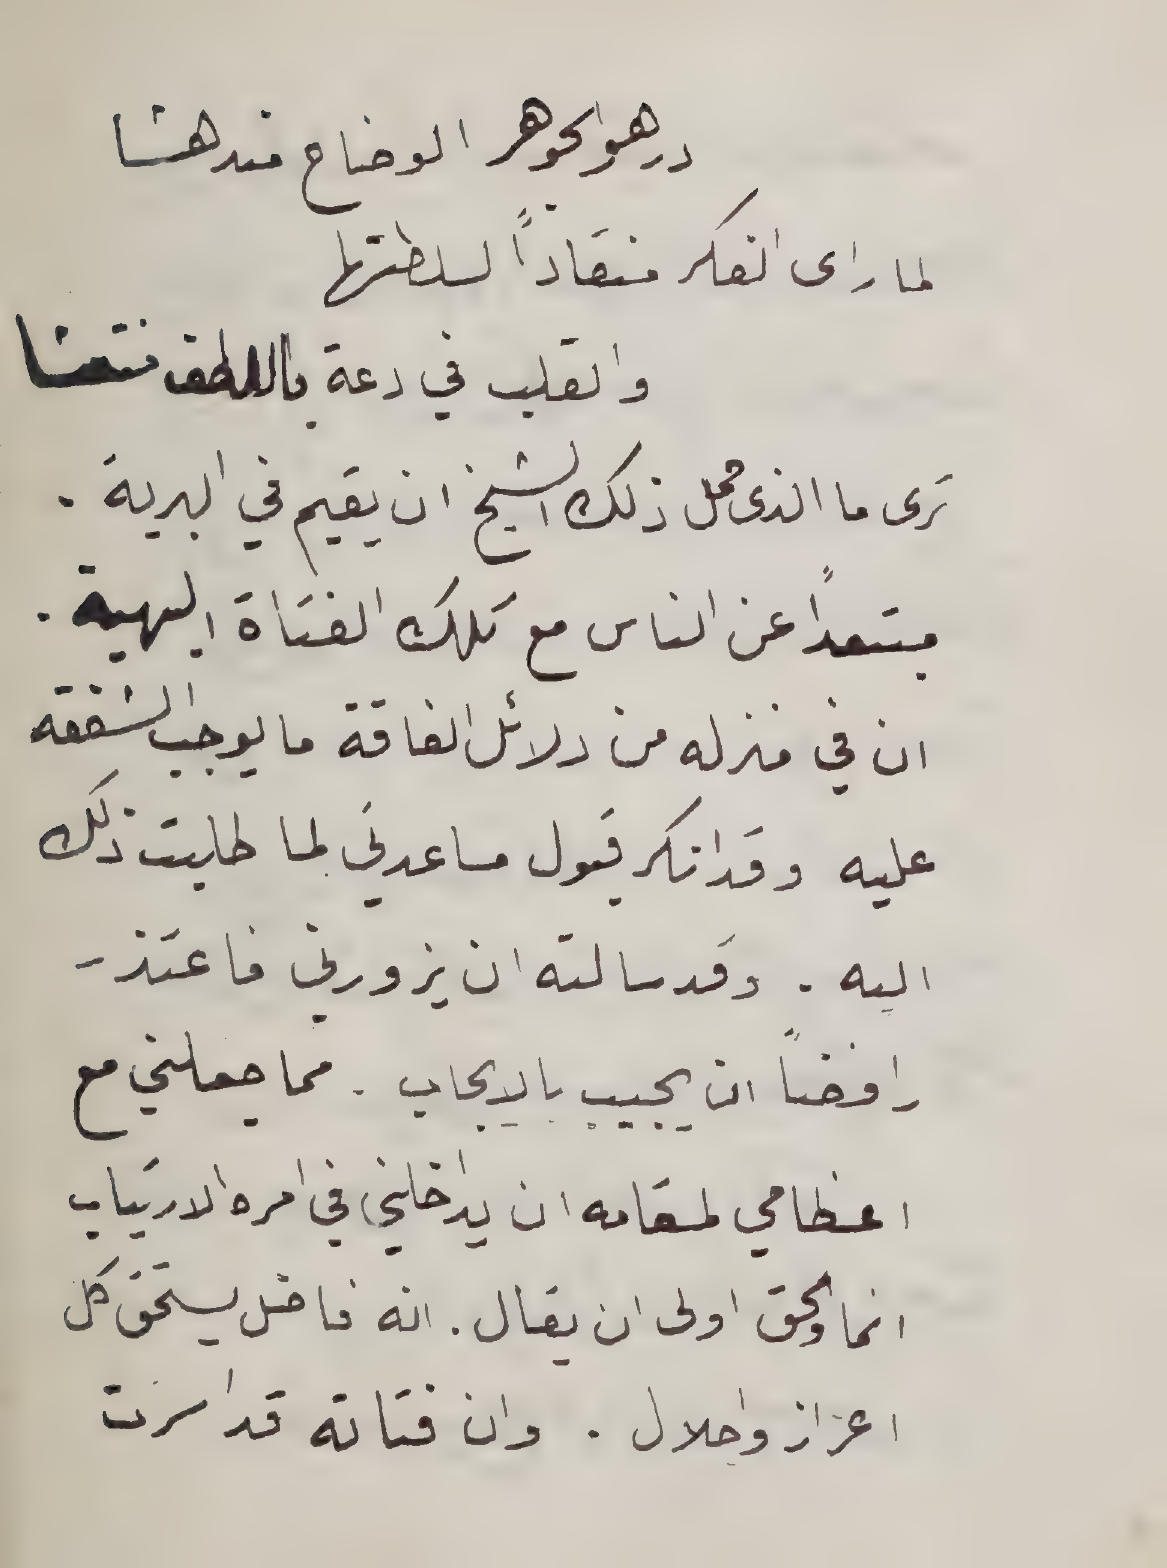 وهو الجوهر الوضاح مندهشا
لما راى الفكر منقاداً لسلطتها
والقلب في دعة باللطف منتعشا
ترى ما الذى حمل ذلك الشيخ ان يقيم في البرية .
مبتعداً عن الناس مع تلك الفتاة البهية .
ان في منزله من دلائل الفاقة ما يوجب الشفقة
عليه وقد انكر قبول مساعدتي لما طلبت ذلك
اليه . وقد سالته ان يزورني فاعتذر -
رافضاً ان يجيب بالايجاب . مما جعلني مع
اعظامي لمقامه ان يداخلني في امره الارتياب
انما والحق اولى ان يقال . انه فاضل يستحق كل
اعزاز واجلال . وان فتاته قد اسرت